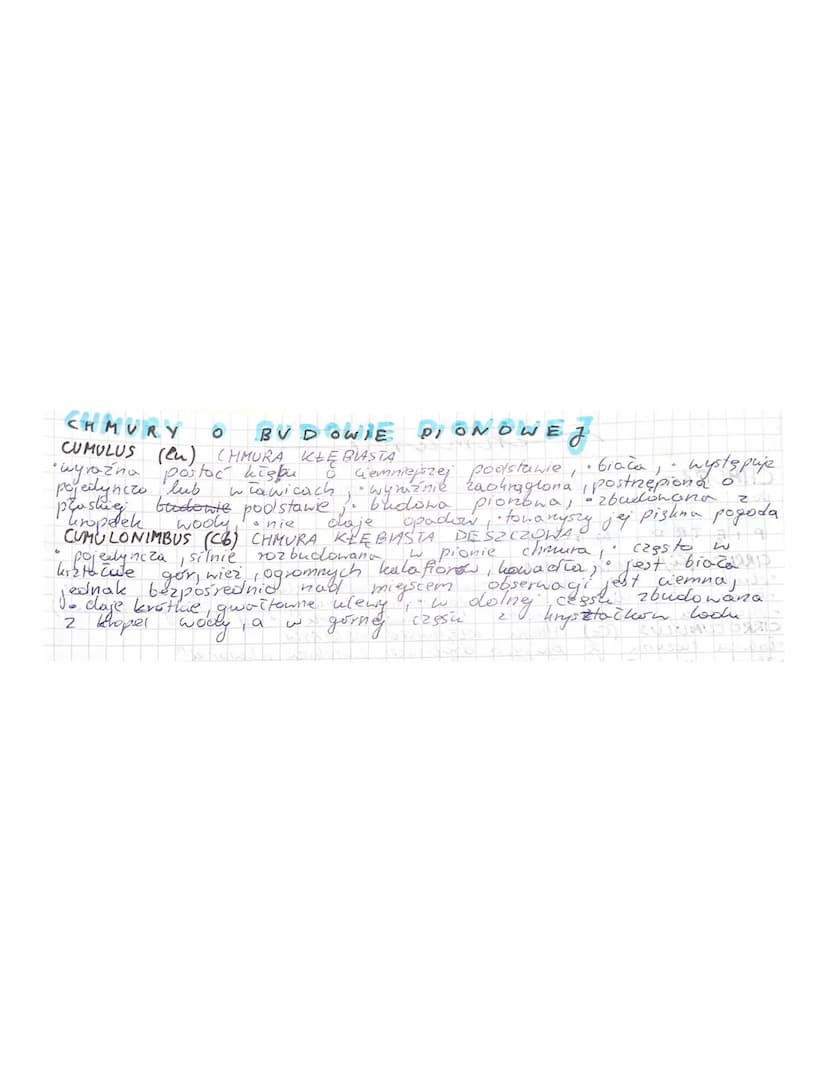 CHMURY O BUDOWIE PIONOWEJ
CUMULUS (Cu) CHMURA KŁĘBIASTA
• wyraźna postać kłębu o ciemniejszej podstawie, • biała, • występuje
pojedynczo lub w ławicach, • wyraźnie zaokrąglona, postrzępiona o
płaskiej budowie podstawie, • budowa pionowa, • zbudowana z
kropelek wody, • nie daje opadów, • towarzyszy jej piękna pogoda
CUMULONIMBUS (Cb) CHMURA KŁĘBIASTA DESZCZOWA
• pojedyncza, silnie rozbudowana w pionie chmura, • często w
kształcie gór, wież, ogromnych kalafiorów, kowadła, • jest biała
jednak bezpośrednio nad miejscem obserwacji jest ciemna,
• daje krótkie, gwałtowne ulewy, • w dolnej części zbudowana
z kropel wody, a w górnej części z kryształków lodu